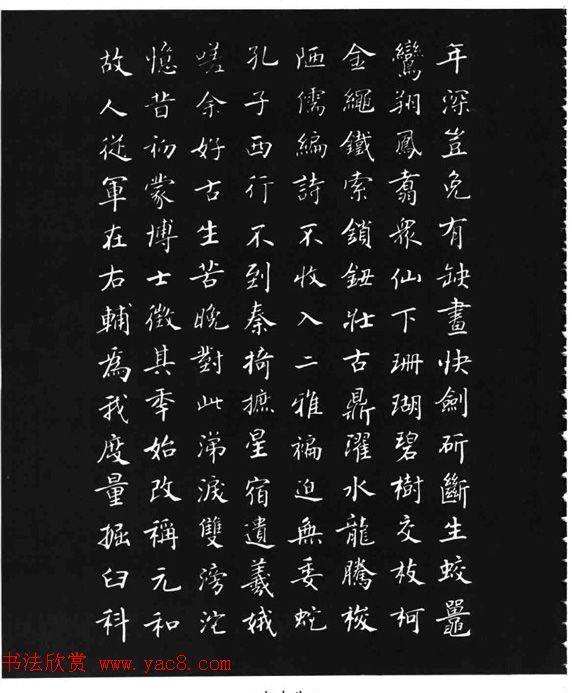 年深豈免有缺畫快劍斫斷生蛟鼉
鸞翔鳳翥衆仙下珊瑚碧樹交枝柯
金繩鐵索鎖鈕壯古鼎躍水龍騰梭
陋儒編詩不收入二雅褊迫無委蛇
孔子西行不到秦掎摭星宿遺羲娥
嗟余好古生苦晚對此涕淚雙滂沱
憶昔初蒙博士徵其秊始改稱元和
故人從軍在右輔爲我度量掘臼科
书法欣赏 www.yac8.com